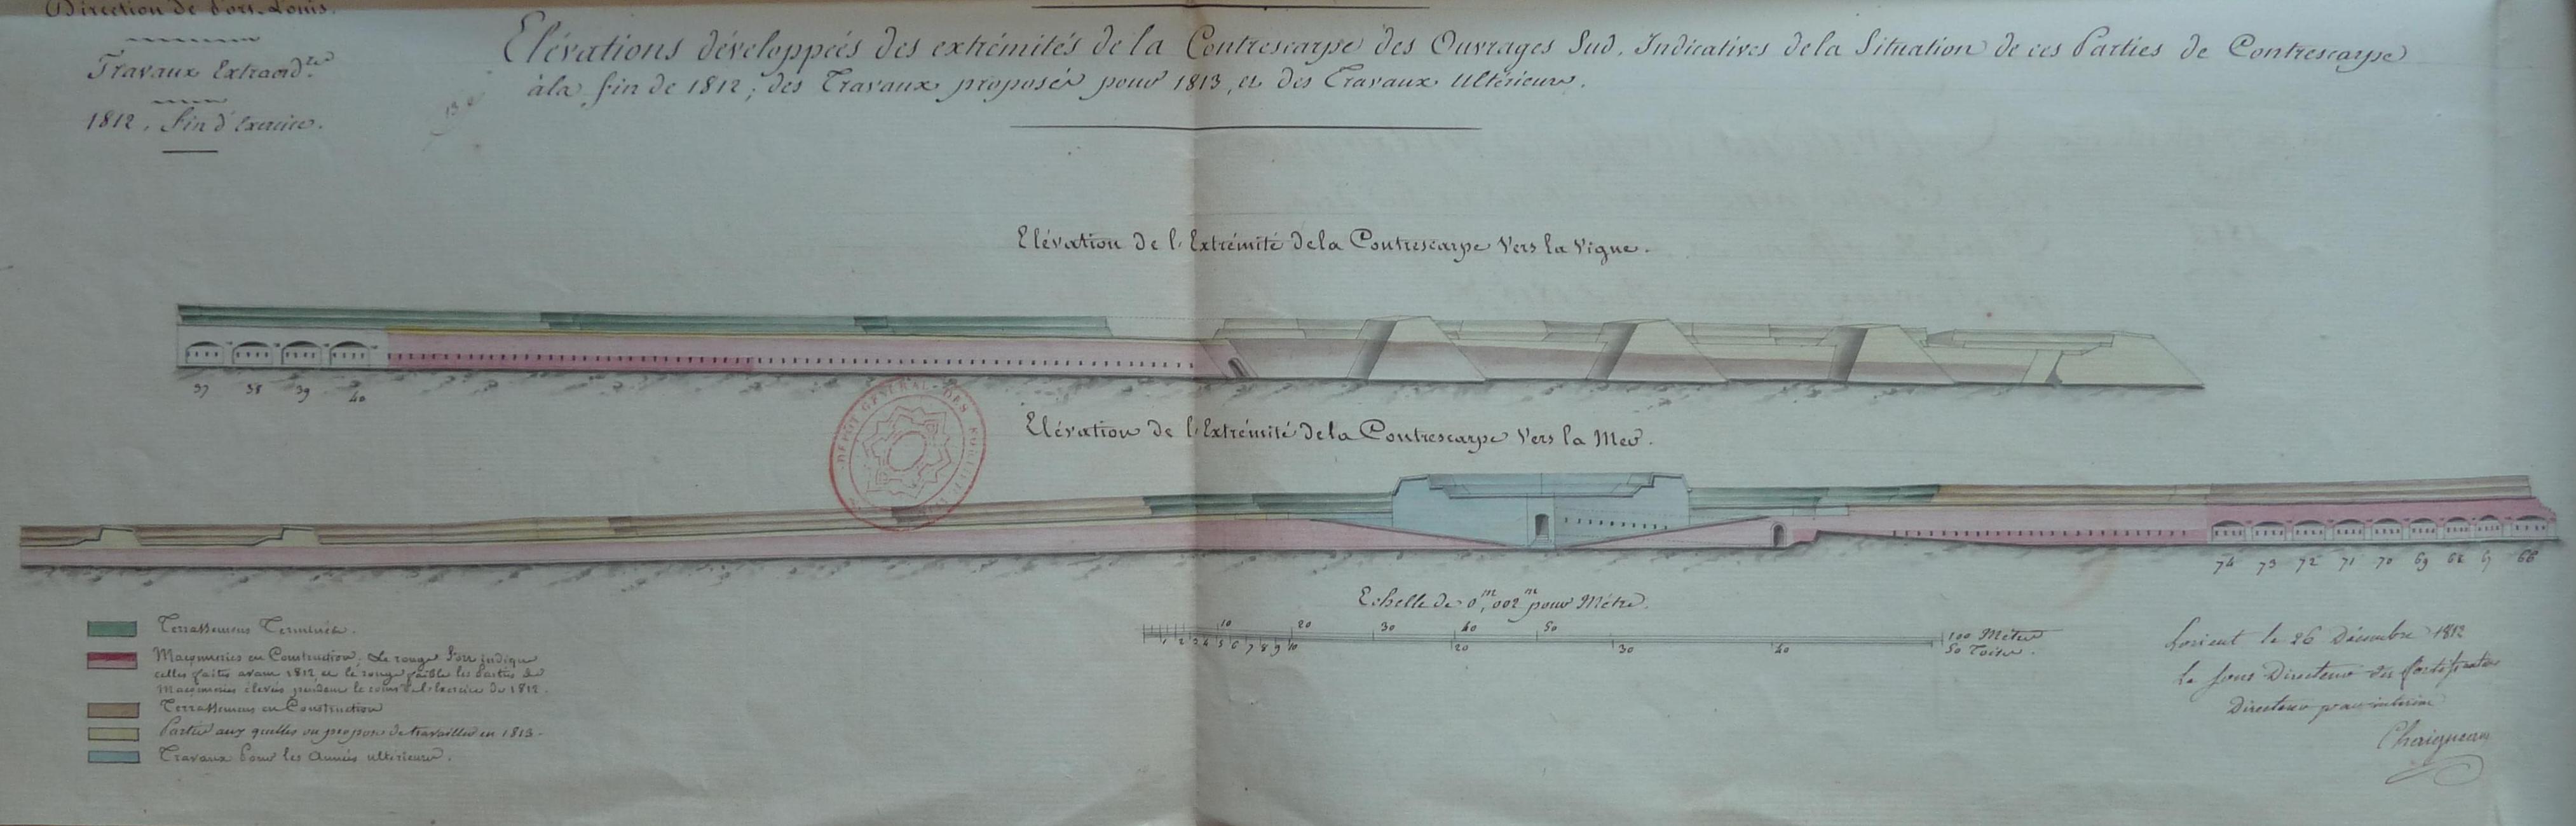 Direction de Port-Louis.
Travaux Extraordres
1812. Fin d'Exercice.
Elévations développées des extrémités de la Contrescarpe des Ouvrages Sud, Indicatives de la Situation de ces Parties de Contrescarpe
à la fin de 1812; des Travaux proposés pour 1813, et des Travaux Ultérieurs.
Elévation de l'Extrémité de la Contrescarpe Vers la Vigne.
37 38 39 40
DÉPÔT GÉNÉRAL DES
Elévation de l'Extrémité de la Contrescarpe Vers la Mer.
74 73 72 71 70 69 68 67 66
Echelle de 0m,002m pour Mètre.
10 20 30 40 50 100 Mètres
1 2 3 4 5 6 7 8 9 10 20 30 40 50 Toises.
Terrassemens Terminés.
Maçonneries en Construction, Le rouge fort indique
celles faites avant 1812, et le rouge faible les Parties de
Maçonneries élevées pendant le cours de l'Exercice de 1812.
Terrassemens en Construction
Parties aux quelles on propose de travailler en 1813.
Travaux Pour les Années ultérieures.
Lorient le 26 Décembre 1812
Le Sous Directeur des Fortifications
Directeur par interim